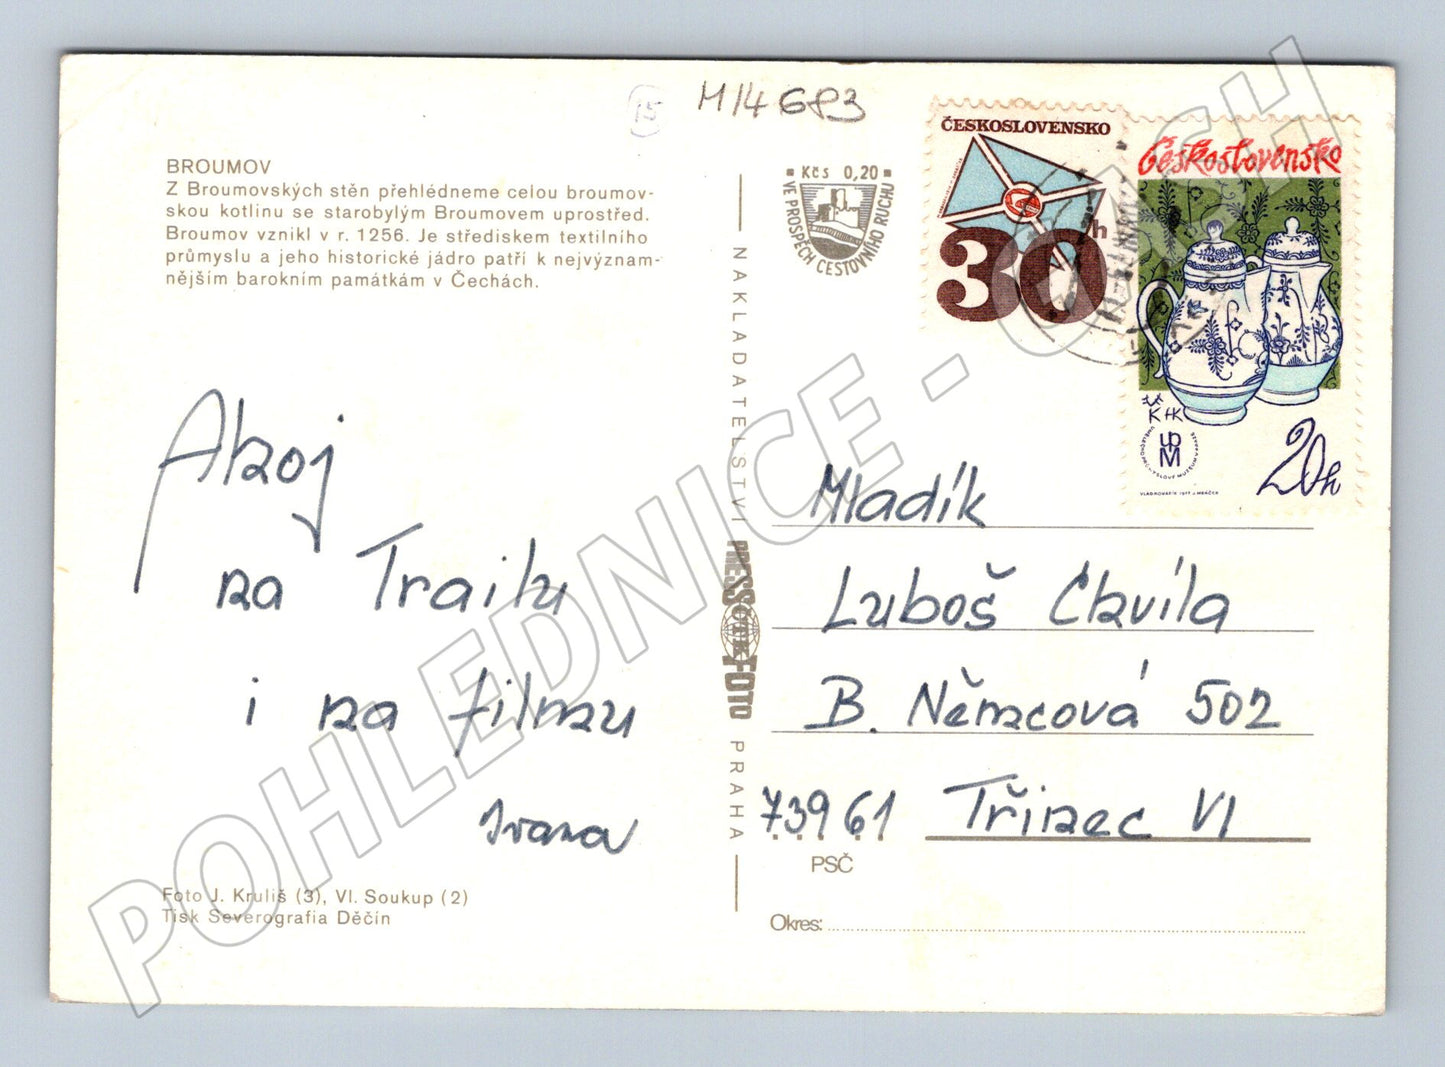 15
M14683
BROUMOV
Z Broumovských stěn přehlédneme celou broumov-
skou kotlinu se starobylým Broumovem uprostřed.
Broumov vznikl v r. 1256. Je střediskem textilního
průmyslu a jeho historické jádro patří k nejvýznam-
nějším barokním památkám v Čechách.
Ahoj
na Trailu
i na filmu
Ivana
Foto J. Kruliš (3), Vl. Soukup (2)
Tisk Severografia Děčín
NAKLADATELSTVÍ PRESSFOTO PRAHA
Kčs 0,20
VE PROSPĚCH CESTOVNÍHO RUCHU
ČESKOSLOVENSKO
30h
Československo
UPM
UMĚLECKOPRŮMYSLOVÉ MUZEUM V PRAZE
20h
Mladík
Luboš Chvíla
B. Němcová 502
73961 Třinec VI
PSČ
Okres:
POHLEDNICE -